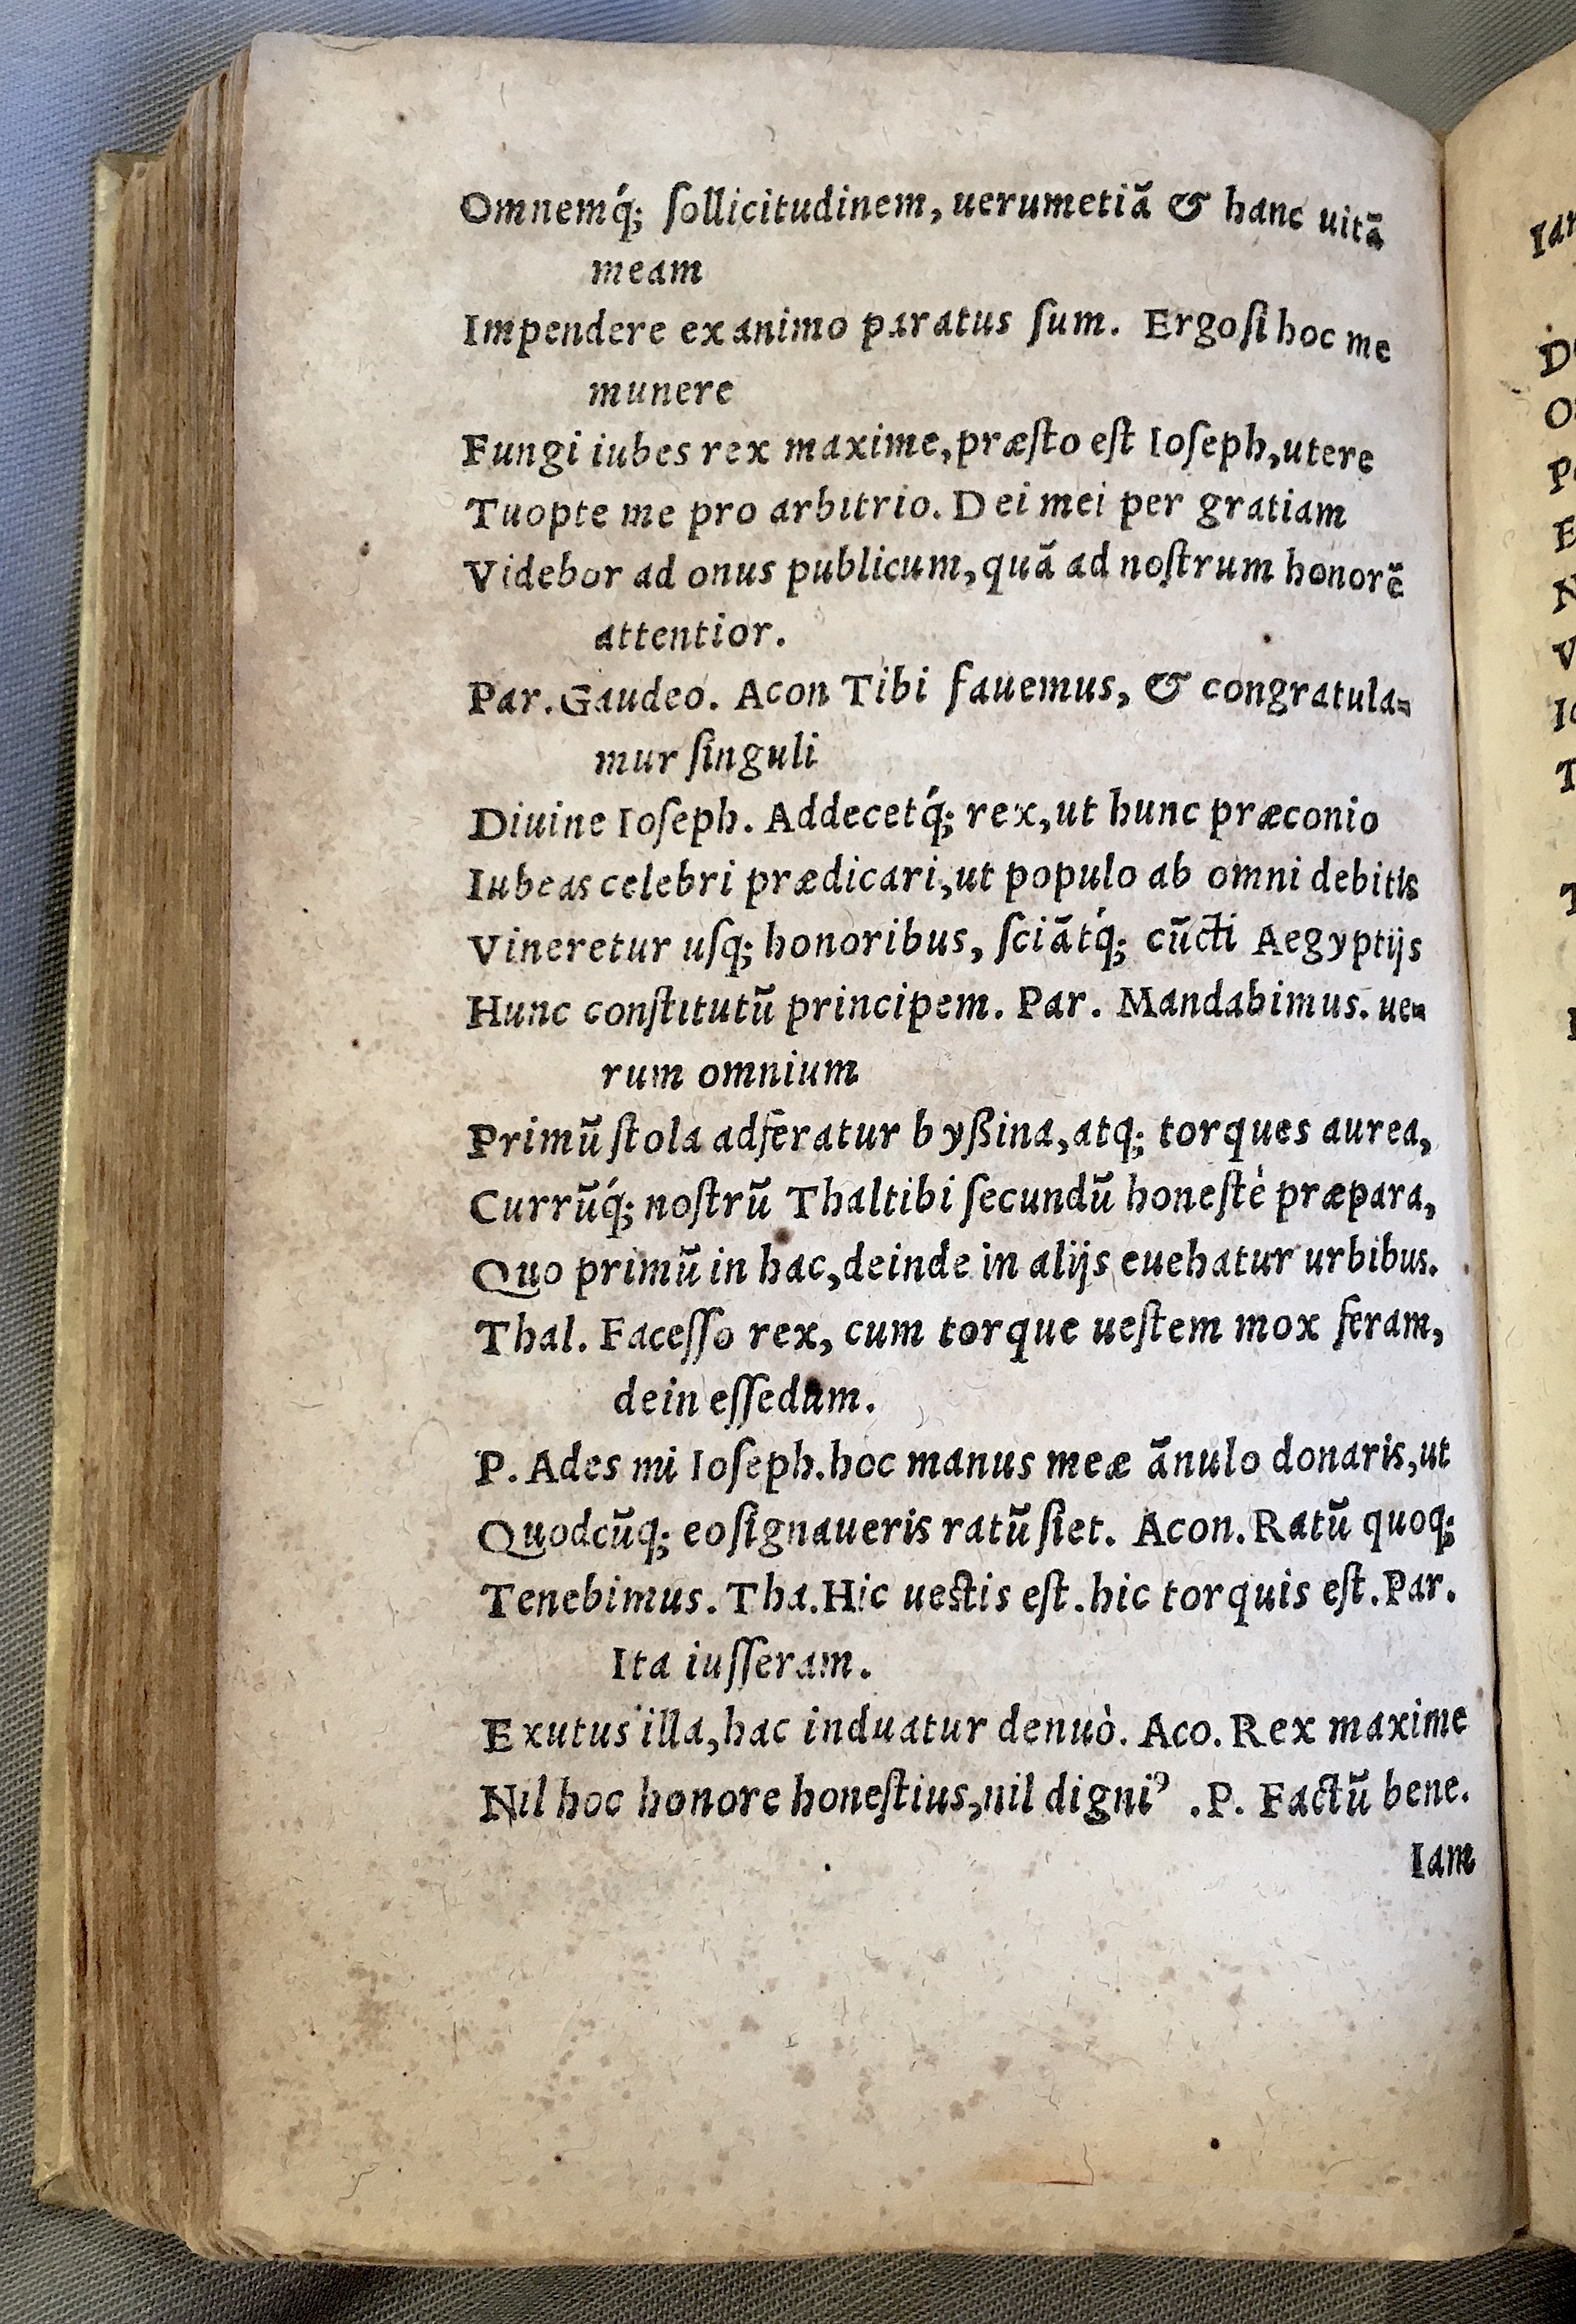 Omnemq́; ſollicitudinem, uerumetiã & hanc uitã
meam
Impendere ex animo paratus ſum. Ergo ſi hoc me
munere
Fungi iubes rex maxime, præſto eſt Ioſeph, utere
Tuopte me pro arbitrio. Dei mei per gratiam
Videbor ad onus publicum, quã ad noſtrum honorẽ
attentior.
Par. Gaudeo. Acon Tibi fauemus, & congratula-
mur ſinguli
Diuine Ioſeph. Addecetq́; rex, ut hunc præconio
Iubeas celebri prædicari, ut populo ab omni debitis
Vineretur uſq; honoribus, ſciãtq́; cũcti Aegyptijs
Hunc conſtitutũ principem. Par. Mandabimus. ue-
rum omnium
Primũ ſtola adferatur byßina, atq; torques aurea,
Currũq́; noſtrũ Thaltibi ſecundũ honeſtè præpara,
Quo primũ in hac, deinde in alijs euehatur urbibus.
Thal. Faceſſo rex, cum torque ueſtem mox feram,
dein eſſedum.
P. Ades mi Ioſeph. hoc manus meæ ãnulo donaris, ut
Quodcũq; eo ſignaueris ratũ ſiet. Acon. Ratũ quoq;
Tenebimus. Tha. Hic ueſtis eſt. hic torquis eſt. Par.
Ita iuſſeram.
Exutus illa, hac induatur denuò. Aco. Rex maxime
Nil hoc honore honeſtius, nil digniꝰ . P. Factũ bene.
Iam